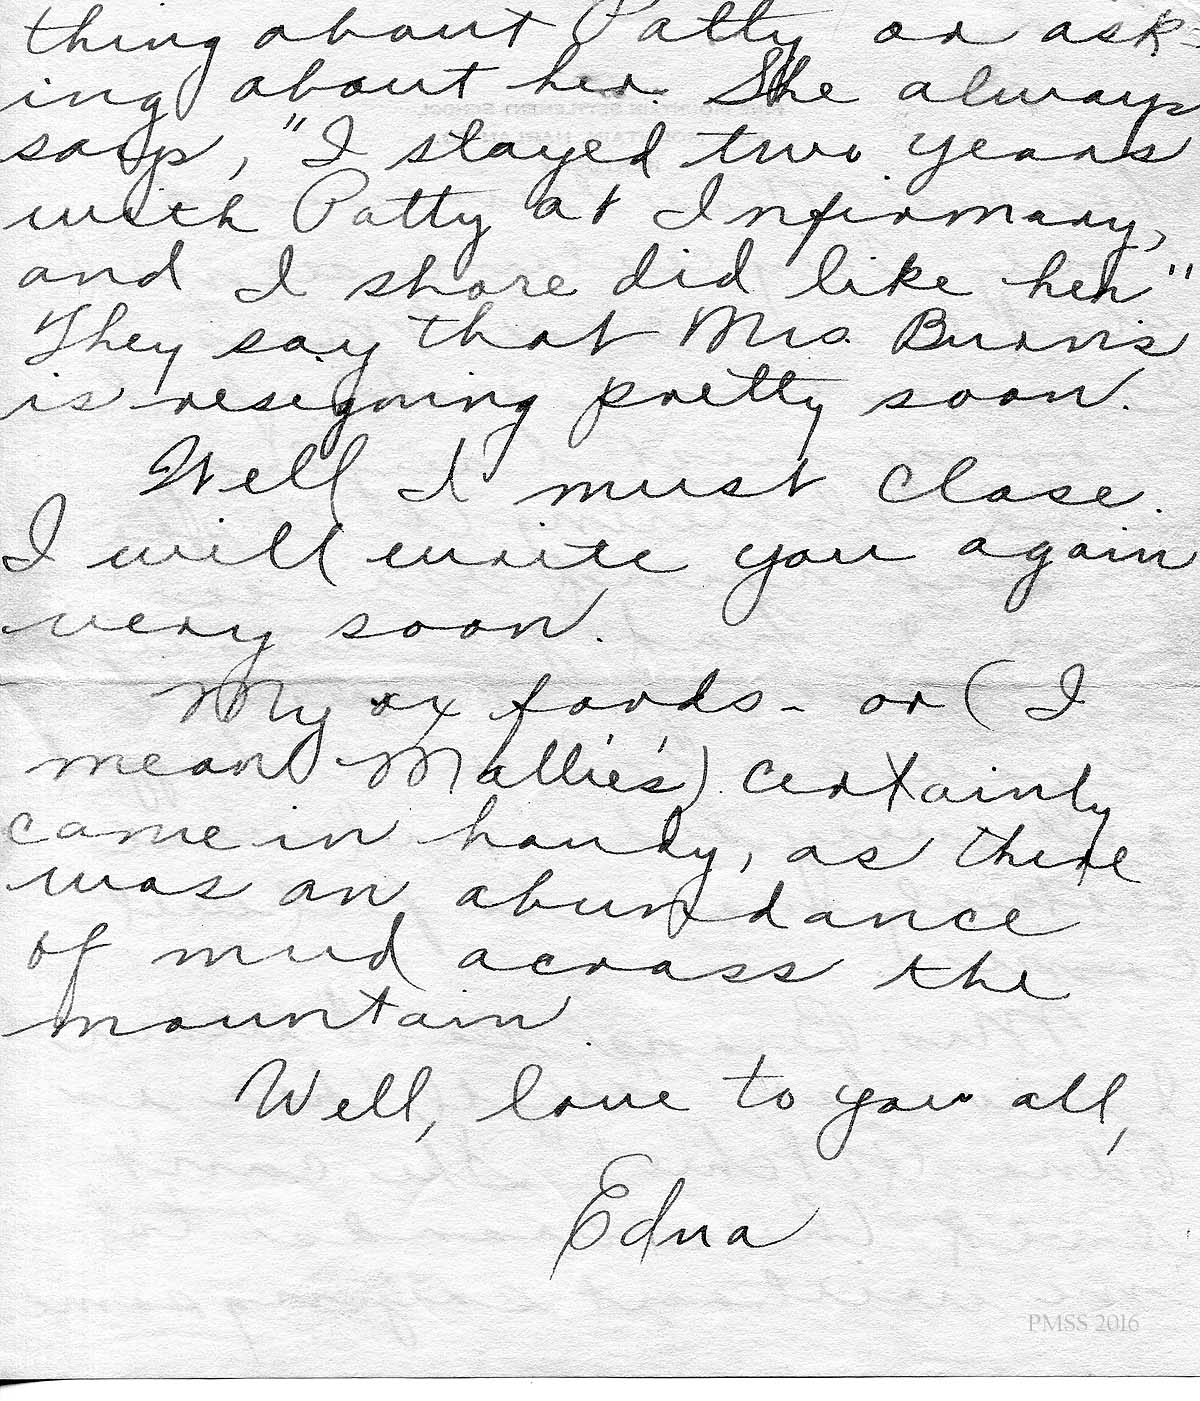 thing about Patty or ask-
ing about her. She always
says, "I stayed two years
with Patty at Infirmary,
and I shore did like her"
They say that Mrs. Burns
is resigning pretty soon.
Well I must close.
I will write you again
very soon.
My oxfords - or (I
mean Mallie's) certainly
came in handy, as there
was an abundance
of mud across the
mountain.
Well, love to you all,
Edna
PMSS 2016